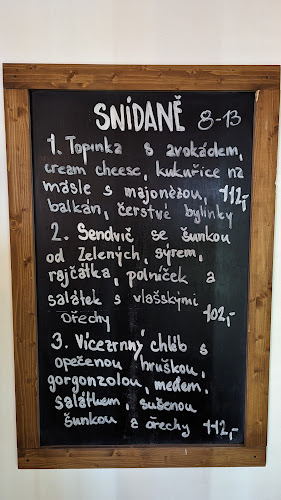 SNÍDANĚ 8-13
1. Topinka s avokádem,
cream cheese, kukuřice na
másle s majonézou, 112,-
balkán, čerstvé bylinky
2. Sendvič se šunkou
od Zelených, sýrem,
rajčátka, polníček a
salátek s vlašskými
ořechy 102,-
3. Vícezrnný chléb s
opečenou hruškou,
gorgonzolou, medem,
salátkem, sušenou
šunkou a ořechy 112,-